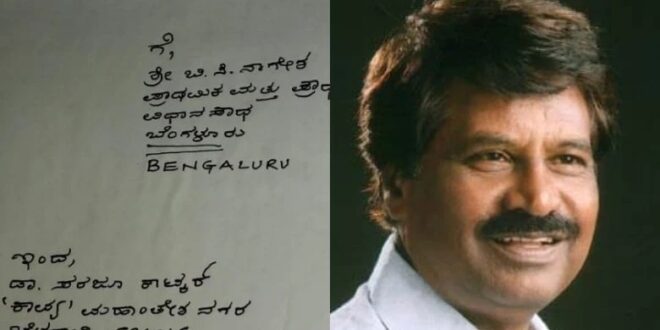 ಗೆ,
ಶ್ರೀ ಬಿ. ಸಿ. ನಾಗೇಶ
ಪ್ರಾಥಮಿಕ ಮತ್ತು ಪ್ರಾಥ
ವಿಧಾನ ಸೌಧ
ಬೆಂಗಳೂರು
BENGALURU
ಇಂದ,
ಡಾ. ಸರಜೂ ಕಾಟ್ಕರ್
'ಕಾವ್ಯ' ಮಹಾಂತೇಶ ನಗರ